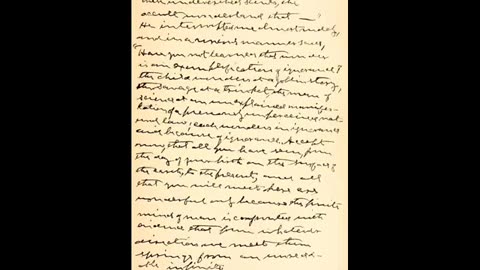 their undiscovered secrets, the
occult wonderland that —"
He interrupted me almost rudely,
and in a serious manner said,
"Have you not learned that wonder
is an exemplification of ignorance?
The child wonders at a goblin story,
the savage at a trinket, the man of
science at an unexplained manifes-
tation of a previously unperceived nat-
ural law; each wonders in ignorance
and because of ignorance. Accept
now, that all you have seen, from
the day of your birth on the surface of
the earth, to the present, and all
that you will meet here are
wonderful only because the finite
mind of man is with
evidence that from whatever
direction we meet them
springs from an
infinite